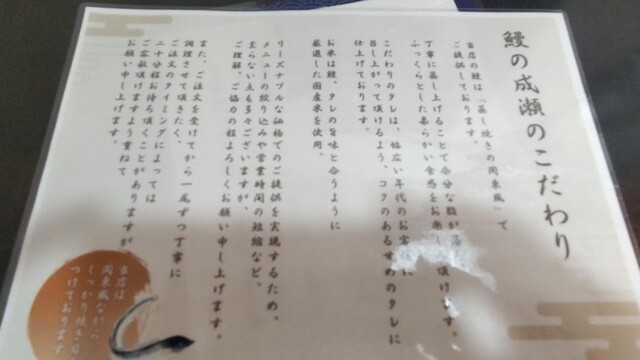 鰻の成瀬のこだわり
当店の鰻は「蒸し焼きの関東風」で
ご提供しております。
丁寧に蒸し上げることで余分な脂が
ふっくらとした柔らかい食感をお楽し 頂けます。
こだわりのタレは、幅広い年代のお客様に
召し上がって頂けるよう、コクのあるせめのタレに
仕上げております。
お米は鰻、タレの旨味と合うように
厳選した国産米を使用。
リーズナブルな価格でのご提供を実現するため、
メニューの絞り込みや営業時間の短縮など、
至らない点も多々ございますが、
ご理解、ご協力の程よろしくお願い申し上げます。
また、ご注文を受けてから一尾ずつ丁寧に
調理させて頂きたく、
ご注文のタイミングによっては
二十分程お待ち頂くことがありますが
ご容赦頂けますよう重ねて
お願い申し上げます。
当店は
関東風ながら、
しっかり焼き目
つけております